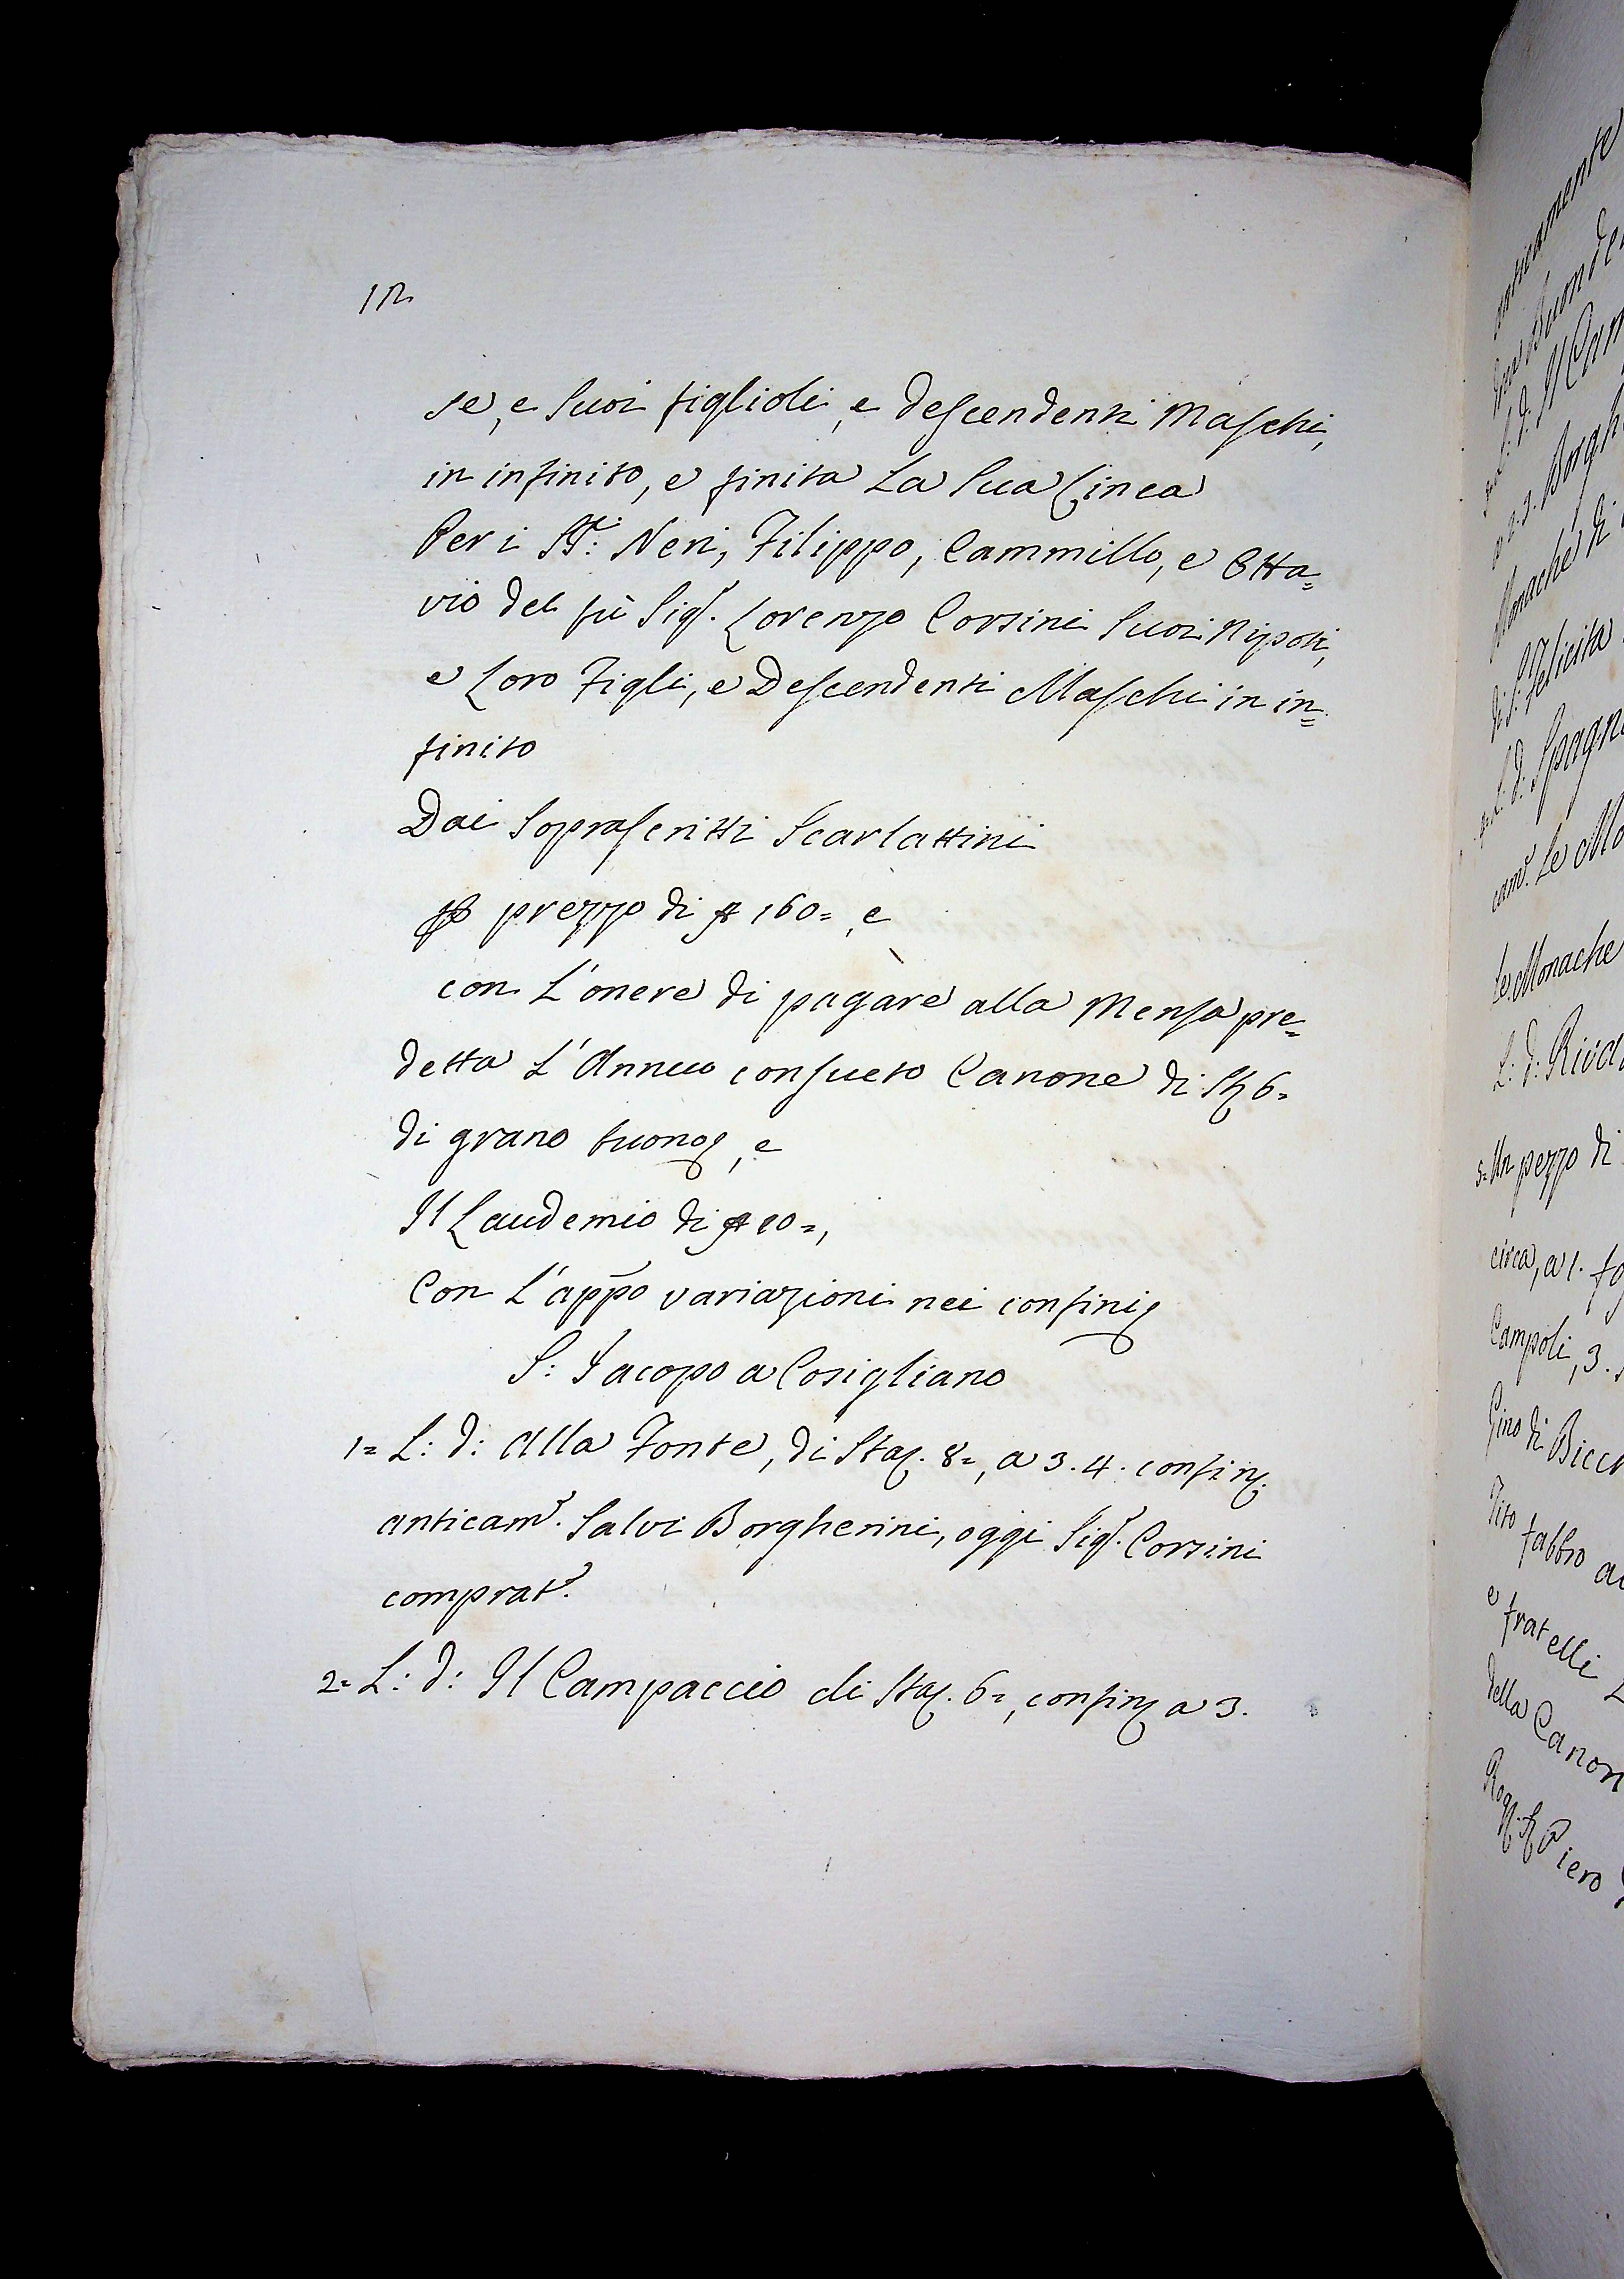 se, e suoi figlioli, e descendenti Maschi,
in infinito, e finita La sua Linea
Per i SS.ri Neri, Filippo, Cammillo, e Otta=
vio del fù Sig.r Lorenzo Corsini suoi Nipoti,
e Loro Figli, e Descendenti Maschi in in=
finito
Dai soprascritti Scarlattini
prezzo di 160=, e
con L'onere di pagare alla Mensa pre=
detta L'Annuo consueto Canone di St 6=
di grano buono, e
Il Laudemio di 10=,
Con L'app.o variazioni nei confini
S: Iacopo a Cosigliano
1= L: d: Alla Fonte, di Sta. 8=, a 3. 4. confin.
anticam.e Salvi Borgherini, oggi Sig.r Corsini
comprat.e
2= L: d: Il Campaccio di Sta. 6=, confin a 3.
anticamente
L: d: Il Cam
a 2. 3. Borgh
Monache di
di S. Felicita
L: d: Spagn
cam.e Le Mo
Le Monache
L: d: Riva
5= Un pezzo di
circa, a 1. fo
Campoli, 3.
Gino di Bicc
Tito fabbro a
e fratelli
della Canon
Piero